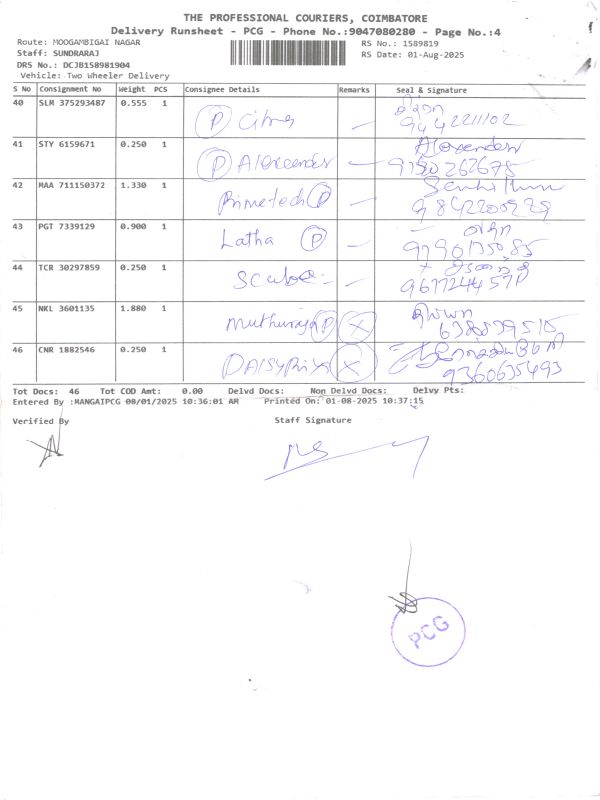 THE PROFESSIONAL COURIERS, COIMBATORE
Delivery Runsheet - PCG - Phone No.:9047080280 - Page No.:4
Route: MOOGAMBIGAI NAGAR
Staff: SUNDRARAJ
DRS No.: DCJB158981904
Vehicle: Two Wheeler Delivery
RS No.: 1589819
RS Date: 01-Aug-2025
S No Consignment No Weight PCS Consignee Details Remarks Seal & Signature
40 SLM 375293487 0.555 1 P
9442211102
41 STY 6159671 0.250 1 P Alexander Alexander
9150262675
42 MAA 711150372 1.330 1 Primetech P
9842200229
43 PGT 7339129 0.900 1 Latha P லதா
9790135085
44 TCR 30297859 0.250 1
9677244571
45 NKL 3601135 1.880 1 Muthuraja P X
46 CNR 1882546 0.250 1 DAISYPRIYA X
9360635493
Tot Docs: 46 Tot COD Amt: 0.00 Delvd Docs: Non Delvd Docs: Delvy Pts:
Entered By :MANGAIPCG 08/01/2025 10:36:01 AM Printed On: 01-08-2025 10:37:15
Verified By Staff Signature
PCG